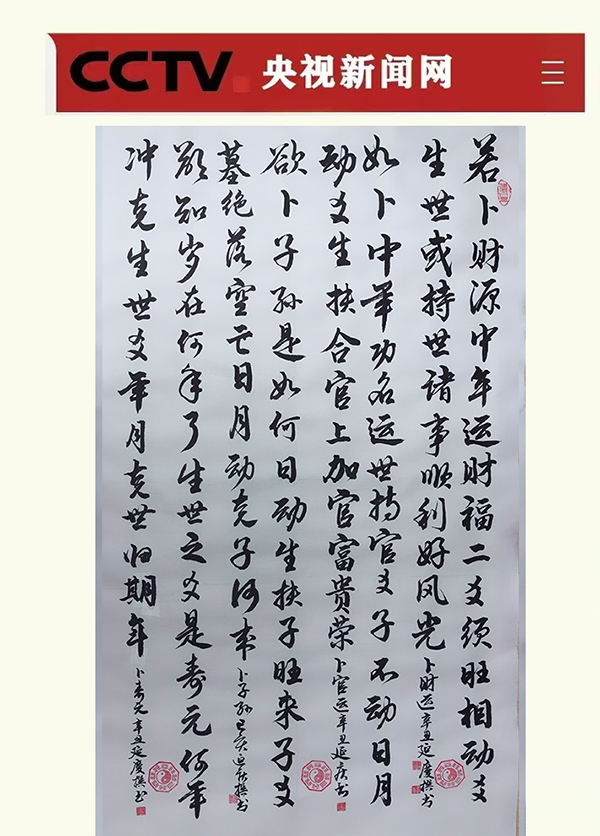 CCTV 央视新闻网
若卜财源中年运财福二爻须旺相动爻
生世或持世诸事顺利好风光
卜财运辛丑延庆撰书
如卜中年功名运世持官爻子不动日月
动爻生扶合官上加官富贵荣
卜官运辛丑延庆书
欲卜子孙是如何日动生扶子旺来子爻
墓绝落空亡日月动克子何来
卜子孙
欲知岁在何年了生世之爻是寿元何年
冲克生世爻年月克世归期年
卜寿元辛丑延庆撰书